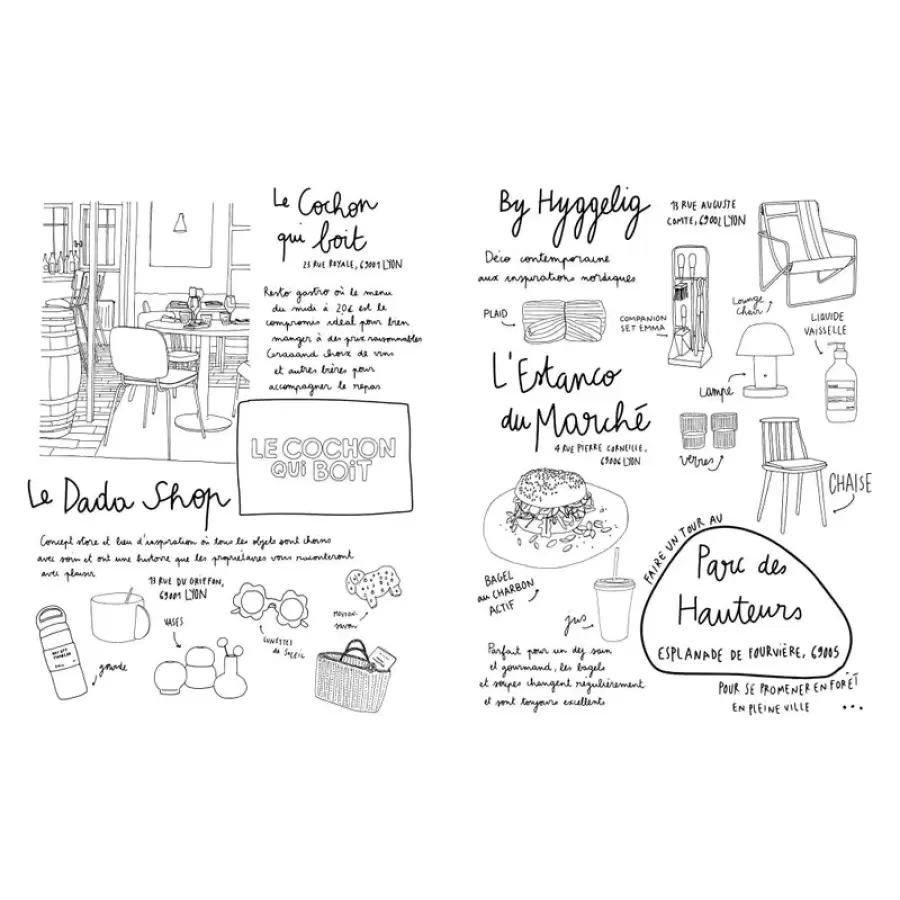 Le Cochon
qui boit
23 RUE ROYALE, 69001 LYON
Resto gastro où le menu
du midi à 20€ est le
compromis idéal pour bien
manger à des prix raisonnables
Graaaand choix de vins
et autres bières pour
accompagner le repas
LE COCHON
QUI BOIT
Le Dada Shop
Concept store et lieu d'inspiration où tous les objets sont choisis
avec soin et ont une histoire que les propriétaires vous raconteront
avec plaisir
13 RUE DU GRIFFON,
69001 LYON
gourde
VASES
LUNETTES
DE SOLEIL
MOUTON-
SAVON
By Hyggelig
13 RUE AUGUSTE
COMTE, 69002 LYON
Déco contemporaine
aux inspirations nordiques
PLAID
COMPANION
SET EMMA
Lounge
Chair
LIQUIDE
VAISSELLE
Lampe
verres
CHAISE
L'Estanco
du Marché
4 RUE PIERRE CORNEILLE,
69006 LYON
BAGEL
AU CHARBON
ACTIF
jus
Parfait pour un dej sain
et gourmand, les bagels
et soupes changent régulièrement
et sont toujours excellents
FAIRE UN TOUR AU
Parc des
Hauteurs
ESPLANADE DE FOURVIÈRE, 69005
POUR SE PROMENER EN FORÊT
EN PLEINE VILLE ...